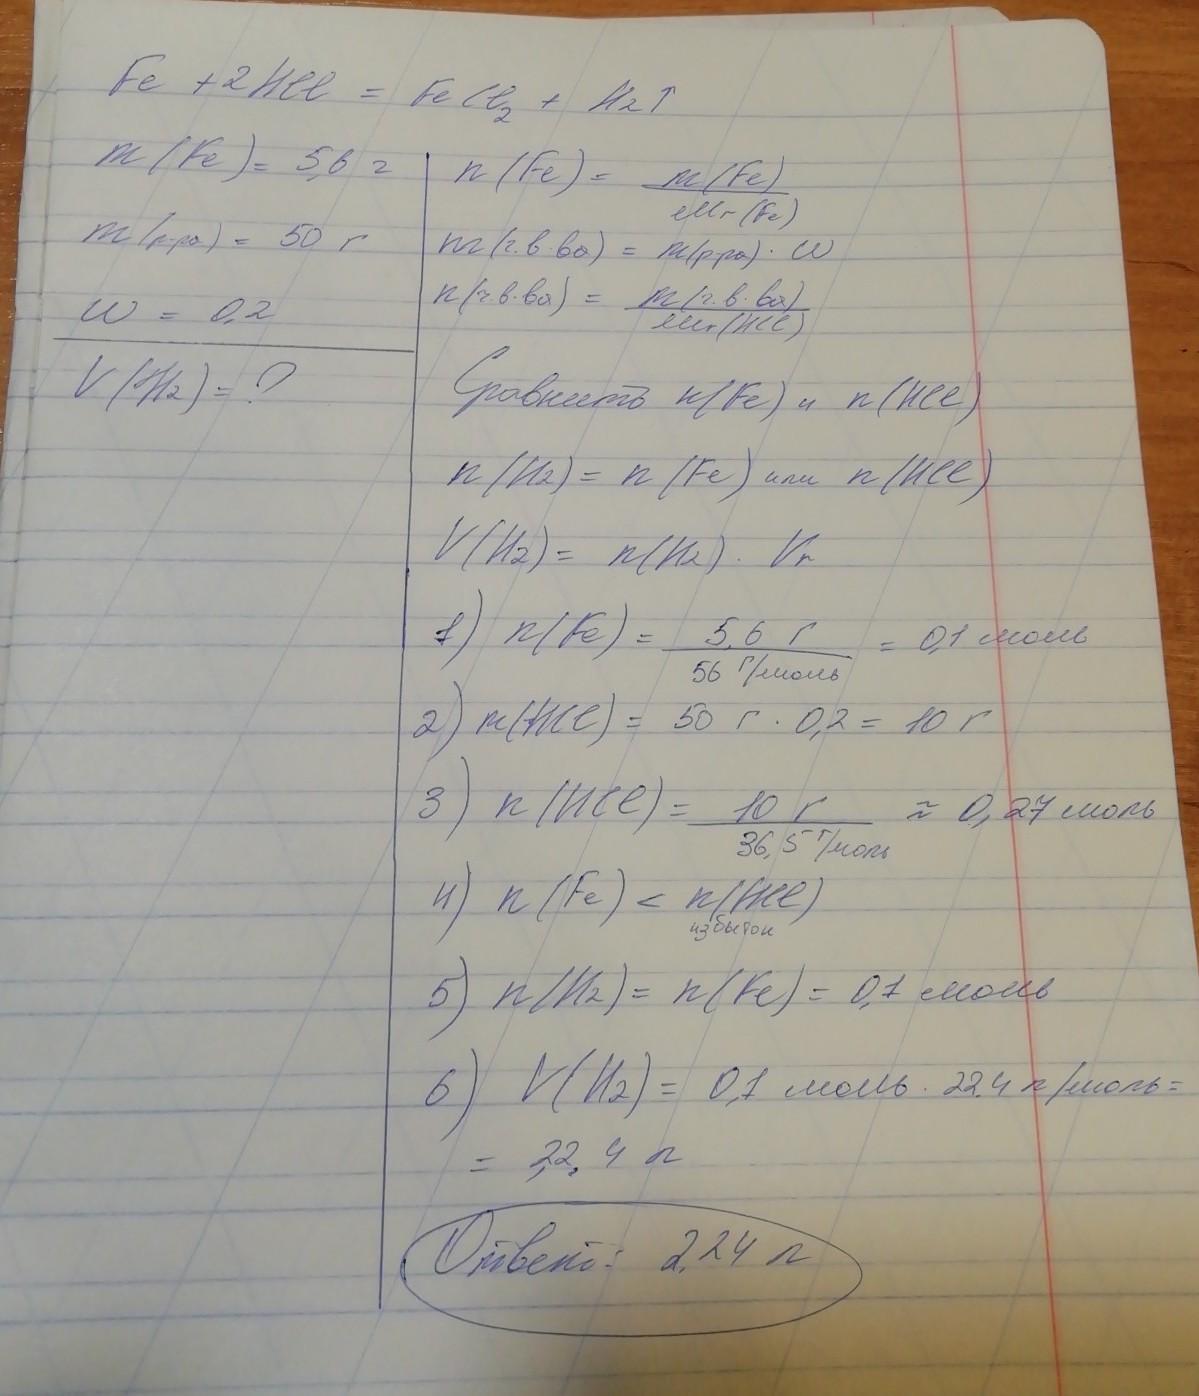 Fe + 2HCl = FeCl₂ + H₂↑
m(Fe) = 5,6 г
m(р-ра) = 50 г
ω = 0,2
V(H₂) = ?
n(Fe) = m(Fe) / Mr(Fe)
m(ч.в-ва) = m(р-ра) · ω
n(ч.в-ва) = m(ч.в-ва) / Mr(HCl)
Сравнить n(Fe) и n(HCl)
n(H₂) = n(Fe) или n(HCl)
V(H₂) = n(H₂) · Vm
1) n(Fe) = 5,6 г / 56 г/моль = 0,1 моль
2) m(HCl) = 50 г · 0,2 = 10 г
3) n(HCl) = 10 г / 36,5 г/моль ≈ 0,27 моль
4) n(Fe) < n(HCl)
избыток
5) n(H₂) = n(Fe) = 0,1 моль
6) V(H₂) = 0,1 моль · 22,4 л/моль =
= 2,24 л
Ответ: 2,24 л